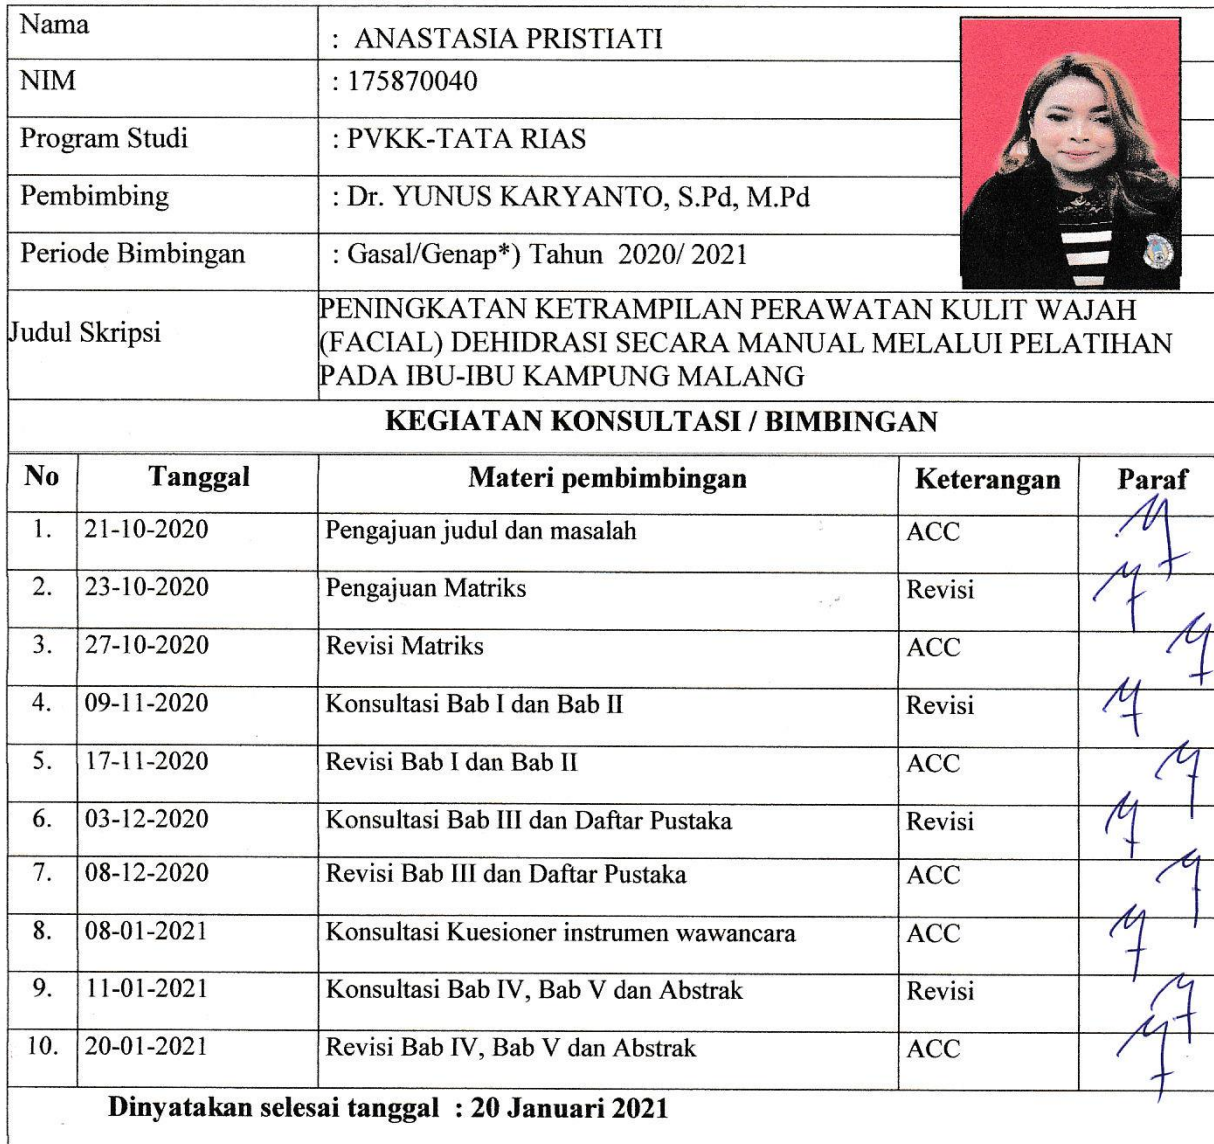 Nama : ANASTASIA PRISTIATI
NIM : 175870040
Program Studi : PVKK-TATA RIAS
Pembimbing : Dr. YUNUS KARYANTO, S.Pd, M.Pd
Periode Bimbingan : Gasal/Genap*) Tahun 2020/ 2021
Judul Skripsi
PENINGKATAN KETRAMPILAN PERAWATAN KULIT WAJAH
(FACIAL) DEHIDRASI SECARA MANUAL MELALUI PELATIHAN
PADA IBU-IBU KAMPUNG MALANG
KEGIATAN KONSULTASI / BIMBINGAN
No Tanggal Materi pembimbingan Keterangan Paraf
1. 21-10-2020 Pengajuan judul dan masalah ACC
2. 23-10-2020 Pengajuan Matriks Revisi
3. 27-10-2020 Revisi Matriks ACC
4. 09-11-2020 Konsultasi Bab I dan Bab II Revisi
5. 17-11-2020 Revisi Bab I dan Bab II ACC
6. 03-12-2020 Konsultasi Bab III dan Daftar Pustaka Revisi
7. 08-12-2020 Revisi Bab III dan Daftar Pustaka ACC
8. 08-01-2021 Konsultasi Kuesioner instrumen wawancara ACC
9. 11-01-2021 Konsultasi Bab IV, Bab V dan Abstrak Revisi
10. 20-01-2021 Revisi Bab IV, Bab V dan Abstrak ACC
Dinyatakan selesai tanggal : 20 Januari 2021